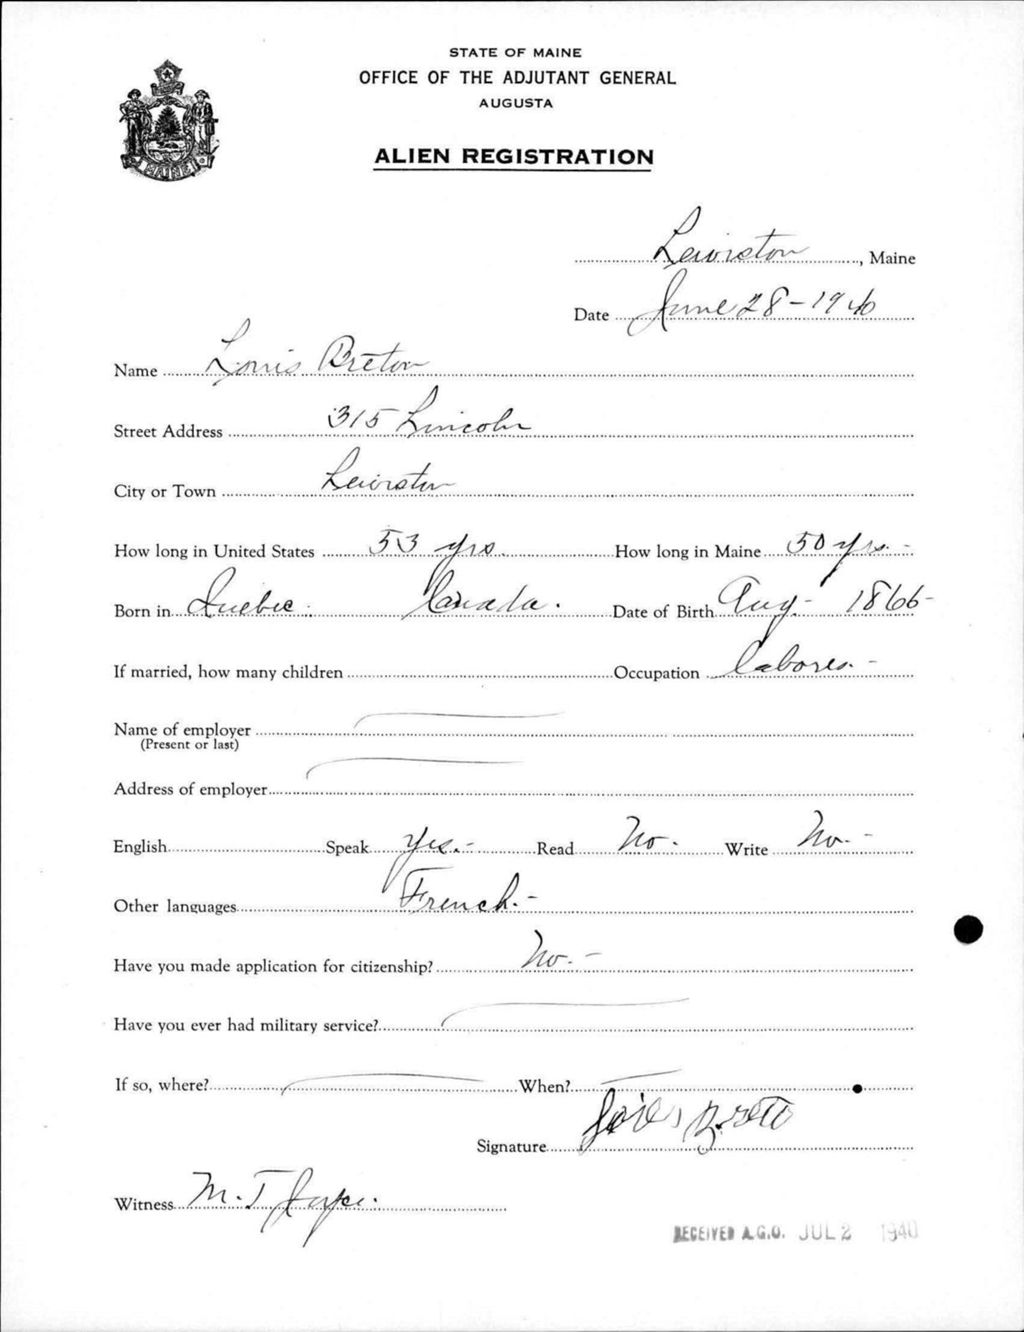 STATE OF MAINE
OFFICE OF THE ADJUTANT GENERAL
AUGUSTA
ALIEN REGISTRATION
MAINE
Lewiston, Maine
Date June 28-1940
Name Louis Breton
Street Address 315 Lincoln
City or Town Lewiston
How long in United States 53 yrs. How long in Maine 50 yrs. -
Born in Quebec. Canada. Date of Birth Aug - 1866-
If married, how many children Occupation Laborer. -
Name of employer
(Present or last)
Address of employer
English Speak Yes. - Read No. Write No. -
Other languages French. -
Have you made application for citizenship? No. -
Have you ever had military service?
If so, where? When?
Signature
Witness M. J. Joyce.
RECEIVED A.G.O. JUL 2 1940